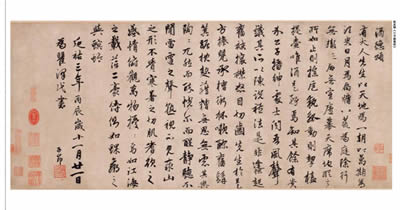 酒德頌
有大人先生以天地為一朝以萬期為
須臾日月為扃牖八荒為庭除行
無轍迹居無室廬幕天席地縱意
所如止則操卮執觚動則挈榼
提壺唯酒是務焉知其餘有貴
介公子搢紳處士聞吾風聲
議其所以陳說禮法是非鋒起
奮袂攘襟怒目切齒先生於是
方捧罌承槽銜杯漱醪奮髯
箕踞枕麴藉糟無思無慮其樂
陶陶兀然而醉恍爾而醒靜聽不
聞雷霆之聲熟視不見泰山
之形不覺寒暑之切肌嗜欲之
感情俯觀萬物擾擾焉如江海
之載浮萍二豪侍側焉如蜾蠃之
與螟蛉
延祐三年丙辰歲十一月廿一日
為瞿澤書
子昂